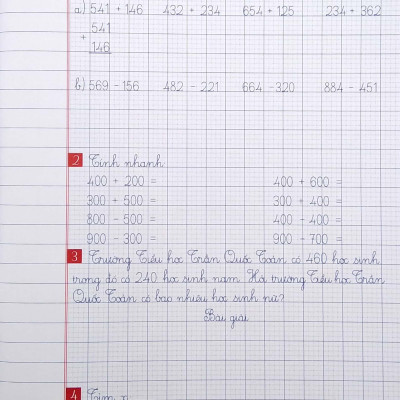 a) 541 + 146 432 + 234 654 + 125 234 + 362
541
+
146
b) 569 - 156 482 - 221 664 - 320 884 - 451
2 Tính nhanh
400 + 200 = 400 + 600 =
300 + 500 = 300 + 400 =
800 - 500 = 400 - 400 =
900 - 300 = 900 - 700 =
3 Trường Tiểu học Trần Quốc Toản có 460 học sinh,
trong đó có 240 học sinh nam. Hỏi trường Tiểu học Trần
Quốc Toản có bao nhiêu học sinh nữ?
Bài giải
4 Tìm